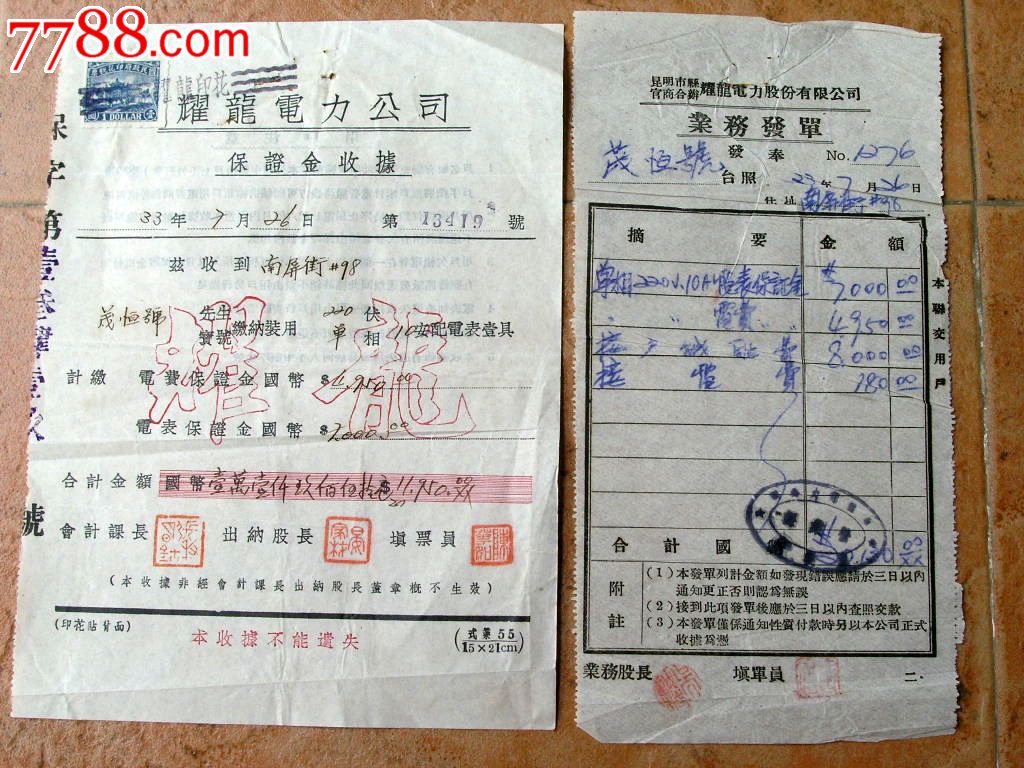 7788.com
1 DOLLAR
耀龍印花
耀龍電力公司
保證金收據
33年7月26日 第13419號
茲收到南屏街#98
茂恒號 先生寶號 繳納裝用 220伏 單相 10安配電表壹具
計繳 電費保證金國幣$4,950.00
電表保證金國幣$7,000.00
合計金額 國幣壹萬壹仟玖佰伍拾 $11,950.00
會計課長 出納股長 填票員
(本收據非經會計課長出納股長蓋章概不生效)
(印花貼背面)
本收據不能遺失
式業55
15×21cm
保字第
號
耀龍
昆明市縣官商合辦 耀龍電力股份有限公司
業務發單
發奉 No.1276
茂恒號 台照 33年7月26日
住址 南屏街#98
摘要 金額
單相220V.10A電表保証金 $7000 00
〃 電費 〃 4950 00
接戶線貼費 8.000 00
接電費 180 00
合計國
本聯交用戶
附註
(1)本發單列計金額如發現錯誤應請於三日以內
通知更正否則認為無誤
(2)接到此項發單後應於三日以內查照交款
(3)本發單僅係通知性質付款時另以本公司正式
收據為憑
業務股長 填單員 二.